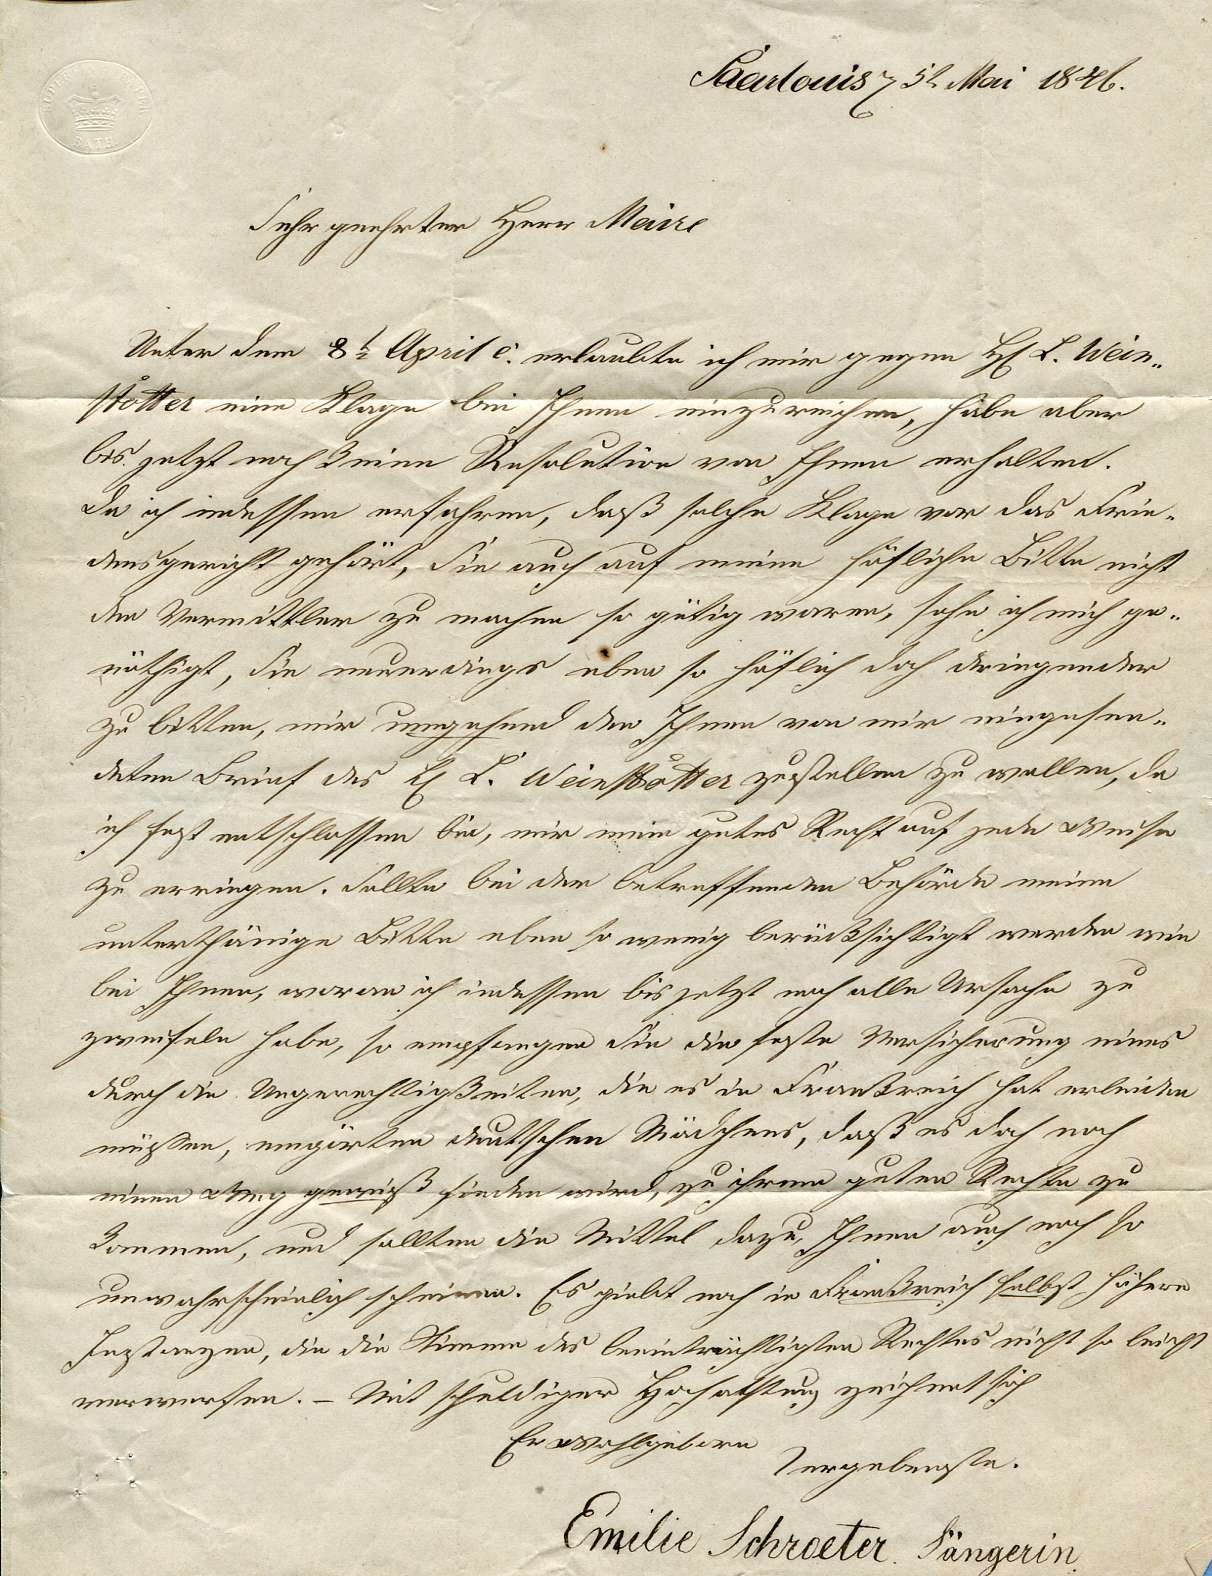 Saarlouis, 5t Mai 1846.
BATH
Sehr geehrter Herr Maire
Unter dem 8t April c. erlaubte ich mir gegen H L. Wein-
stötter eine Klage bei Ihnen einzureichen, habe aber
bis jetzt noch keine Resolution von Ihnen erhalten.
Da ich indessen erfahren, daß solche Klage vor das Frie-
densgericht gehört, Sie auch auf meine höfliche Bitte nicht
den Vermittler zu machen so gütig waren, sehe ich mich ge-
nöthigt, Sie neuerdings eben so höflich doch dringender
zu bitten, mir umgehend den Ihnen von mir eingesen-
deten Brief des H L. Weinstötter zustellen zu wollen, da
ich fest entschlossen bin, mir mein gutes Recht auf jede Weise
zu erringen. Sollte bei der betreffenden Behörde meine
unterthänige Bitte eben so wenig berücksichtigt werden wie
bei Ihnen, woran ich indessen bis jetzt noch alle Ursache zu
zweifeln habe, so empfangen Sie die feste Versicherung eines
durch die Ungerechtigkeiten, die es in Frankreich hat erleiden
müssen, empörten deutschen Mädchens, daß es doch noch
einen Weg gewiß finden wird, zu ihrem guten Rechte zu
kommen, und sollten die Mittel dazu, Ihnen auch noch so
unwahrscheinlich scheinen. Es giebt noch in Frankreich selbst höhere
Instanzen, die die Stimme des beeinträchtigten Rechtes nicht so leicht
verwerfen. – Mit schuldiger Hochachtung zeichnet sich
Ew Wohlgeboren
ergebenste.
Emilie Schroeter. Sängerin.